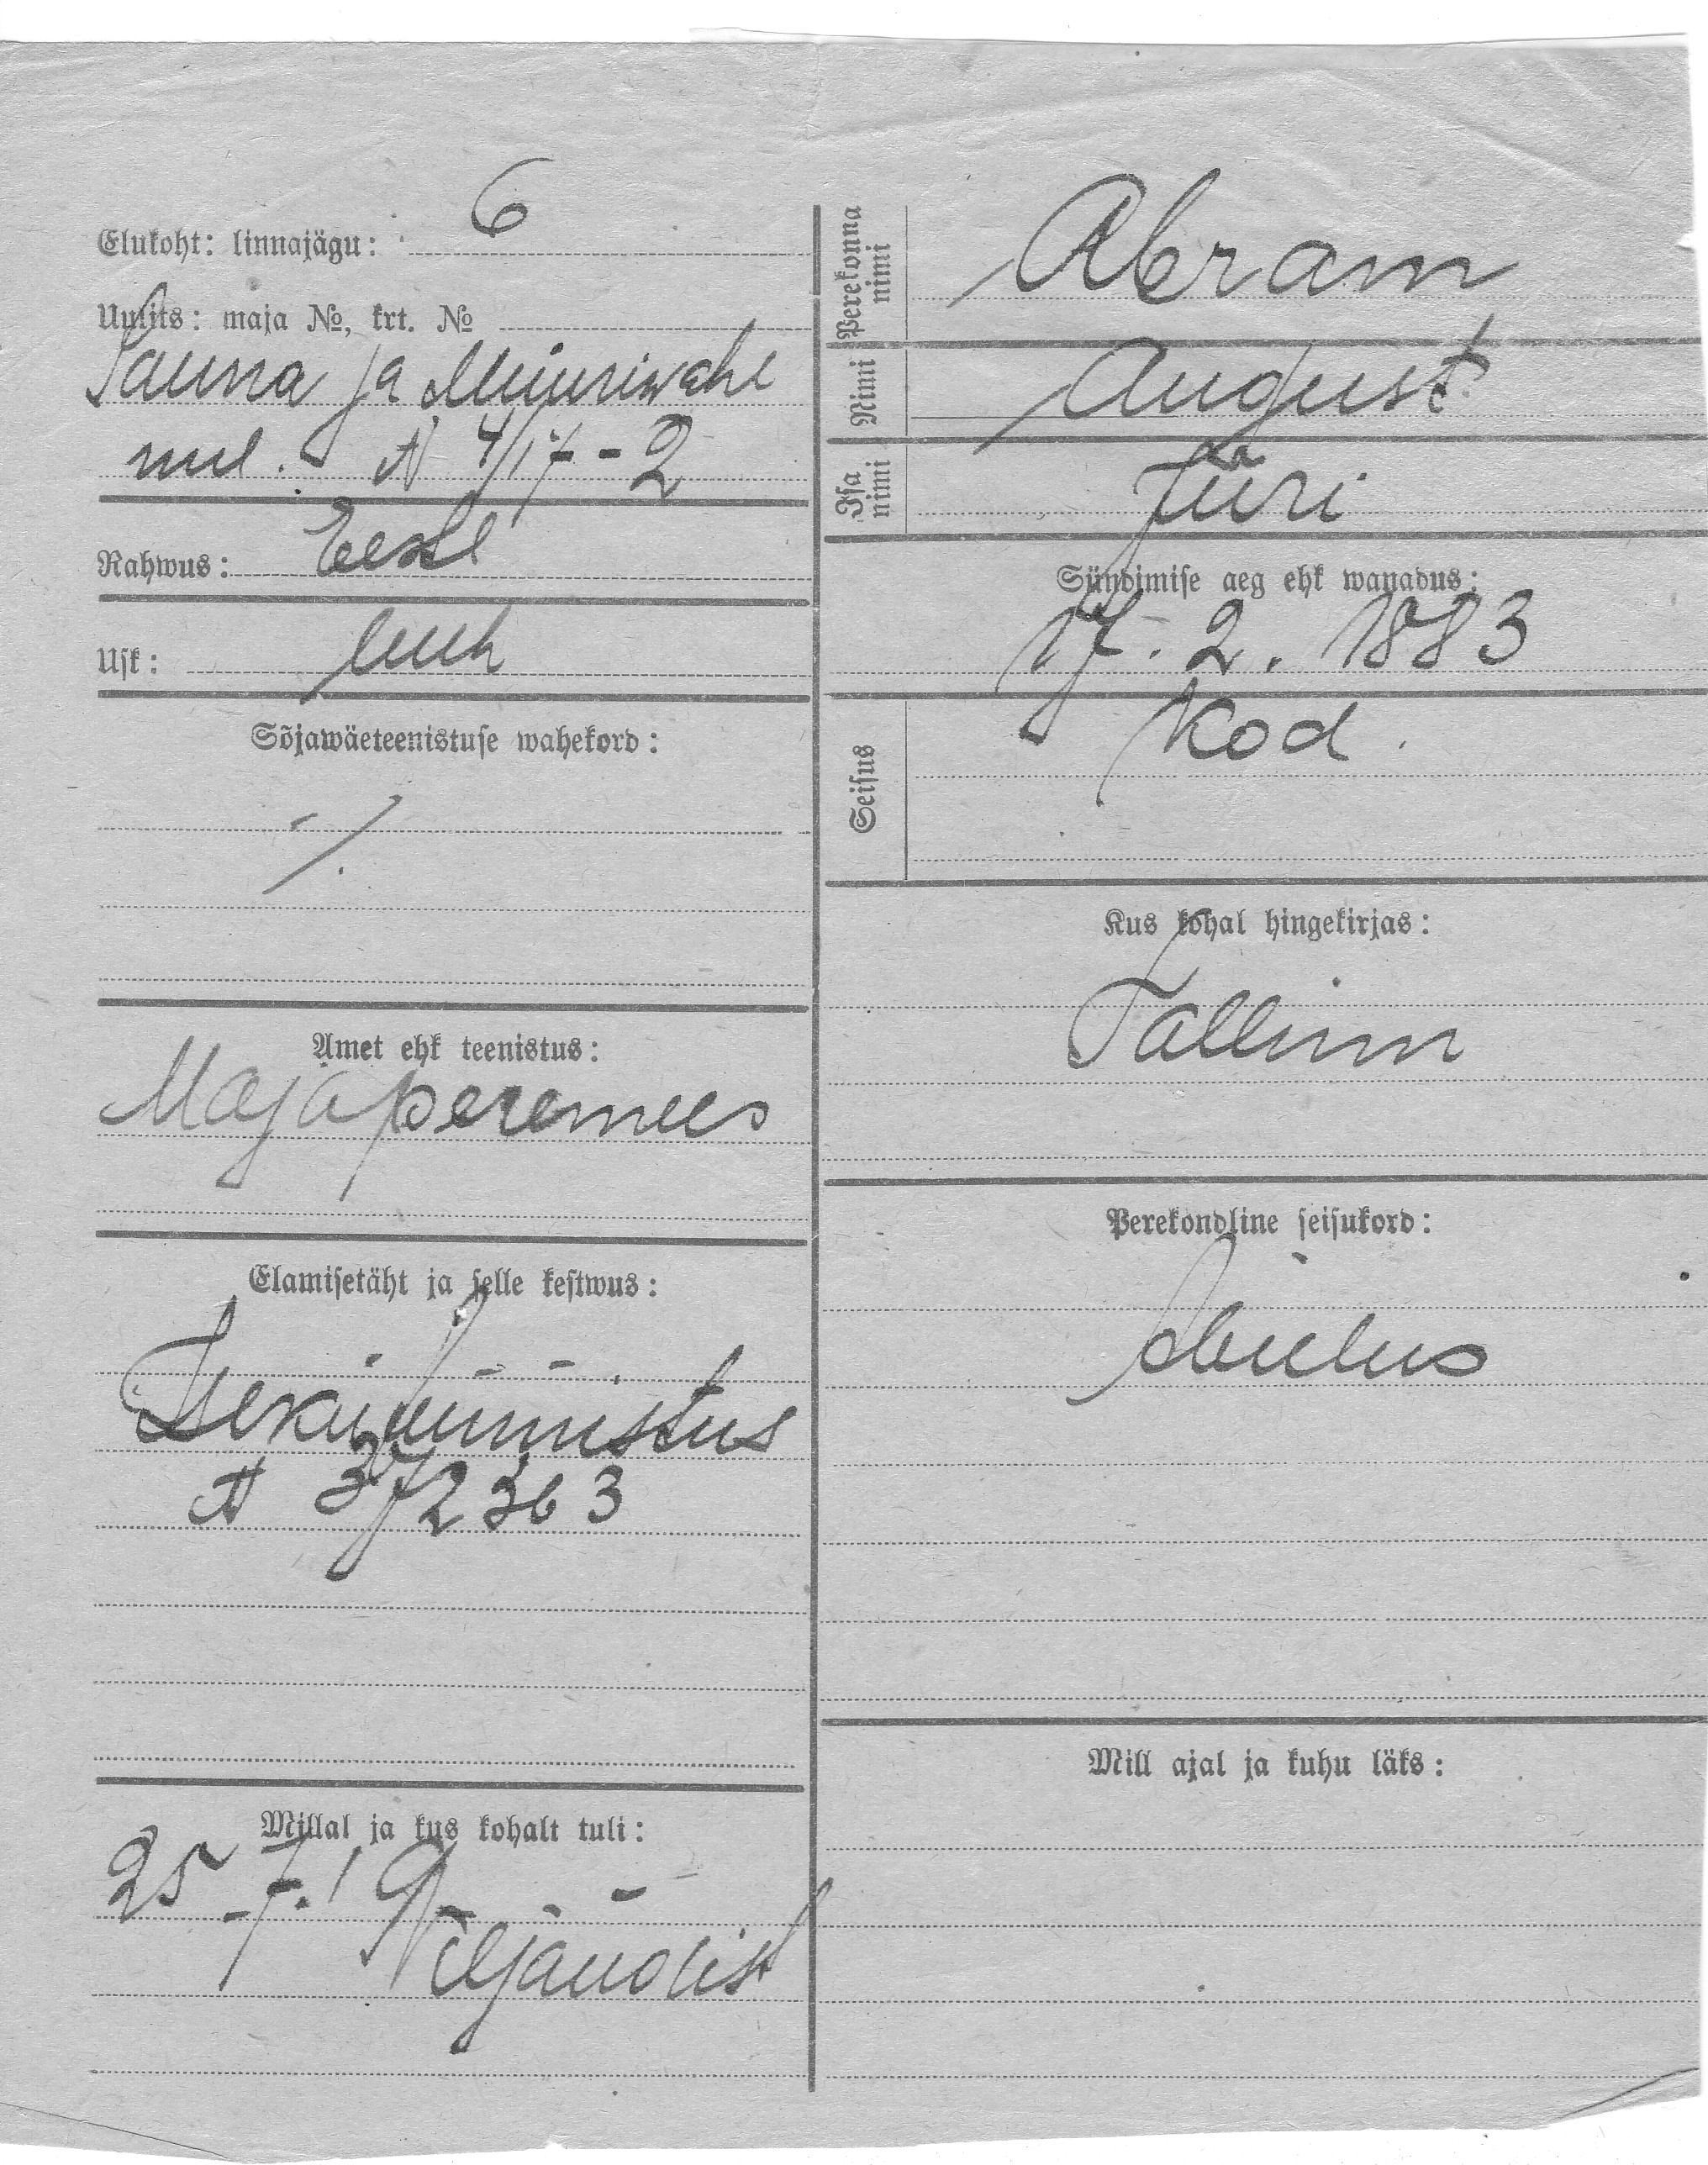 Elukoht: linnajägu: 6
Uulits: maja №, krt. №
Sauna ja Müüriwahe
nul. N 4/17 - 2
Rahwus: Eesti
Usk: luth
Sõjawäeteenistuse wahekord:
Amet ehk teenistus:
Majaperemees
Elamisetäht ja selle kestwus:
Isikutunnistus
N 372363
Millal ja kus kohalt tuli:
25 7. 19
Viljandist
Perekonna nimi
Abram
Nimi
August
Isa nimi
Jüri
Sündimise aeg ehk wanadus:
17. 2. 1883
Seisus
Kod.
Kus kohal hingekirjas:
Tallinn
Perekondline seisukord:
abielus
Mill ajal ja kuhu läks: